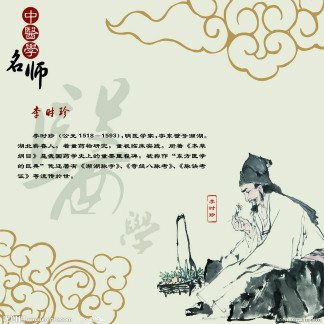 中醫學
名师
李时珍
李时珍（公元1518－1593），明医学家，李東璧号濒湖，
湖北蕲春人。着重药物研究，重视临床实践。所著《本草
纲目》是我国药学史上的重要里程碑，被称作“东方医学
的巨典”他还著有《濒湖脉学》、《奇经八脉考》、《脉诀考
证》等流传於世。
醫
學
李时珍